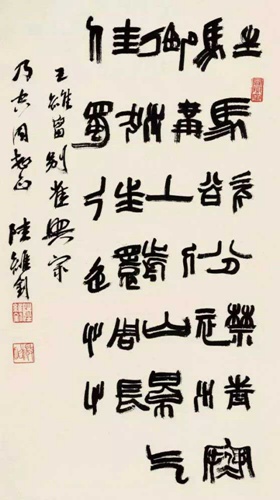 駐馬欲分襟清寒
御溝上前山景气
佳獨往還惆悵
王維留别崔興宗
同志正 陸維釗